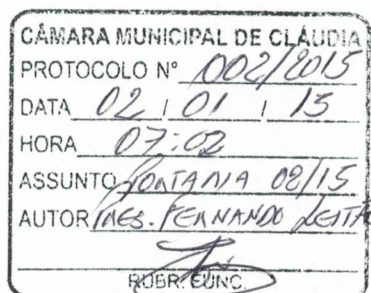 CÂMARA MUNICIPAL DE CLÁUDIA
PROTOCOLO Nº 002/2015
DATA 02 / 01 / 15
HORA 07:02
ASSUNTO PORTARIA 02/15
AUTOR PRES. FERNANDO LEITÃ
RUBR. FUNC.